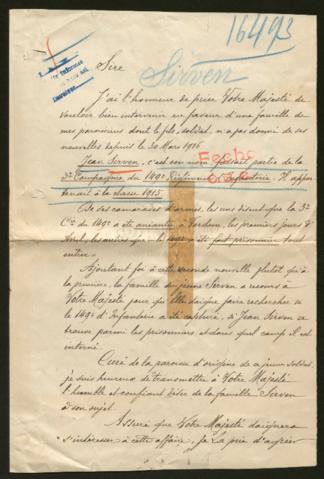 16493
Sirven
Sire
J'ai l'honneur de prier Votre Majesté de
vouloir bien intervenir en faveur d'une famille de
mes paroissiens dont le fils, soldat, n'a pas donné de ses
nouvelles depuis le 30 Mars 1916
Jean Sirven, c'est son nom, faisait partie de la
3e Compagnie du 149e Régiment d'Infanterie. Il appar
tenait à la classe 1915.
De ses camarades d'armes, les uns disent que la 3e
Cie du 149e a été anéantie à Verdun, les premiers jours d'
Avril, les autres que le 149e a été fait prisonnier tout
entier.
Ajoutant foi à cette seconde nouvelle plutôt qu'à
la première, la famille du jeune Sirven a recours à
Votre Majesté pour qu'Elle daigne faire rechercher si
le 149e d'Infanterie a été capturé, si Jean Sirven se
trouve parmi les prisonniers et dans quel camp il est
interné.
Curé de la paroisse d'origine de ce jeune soldat,
je suis heureux de transmettre à Votre Majesté
l'humble et confiant désir de la famille Sirven
à son sujet.
Assuré que Votre Majesté daignera
s'intéresser à cette affaire, je La prie d'agréer